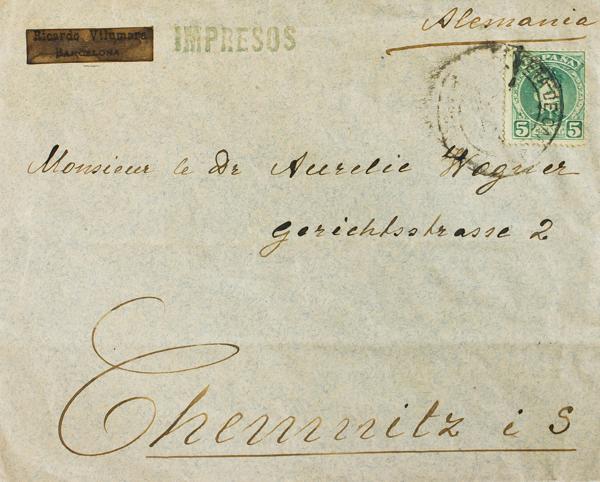 Ricardo Vilumara
BARCELONA
IMPRESOS
Alemania
ESPAÑA
5 5
Monsieur le Dr Aurelie Wagner
Gerichtsstrasse 2
Chemnitz i S